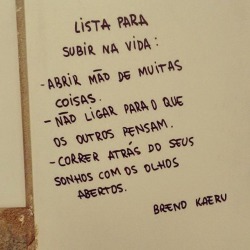 LISTA PARA
SUBIR NA VIDA:
-ABRIR MÃO DE MUITAS
COISAS.
- NÃO LIGAR PARA O QUE
OS OUTROS PENSAM.
- CORRER ATRÁS DO SEUS
SONHOS COM OS OLHOS
ABERTOS.
BRENO KAERU